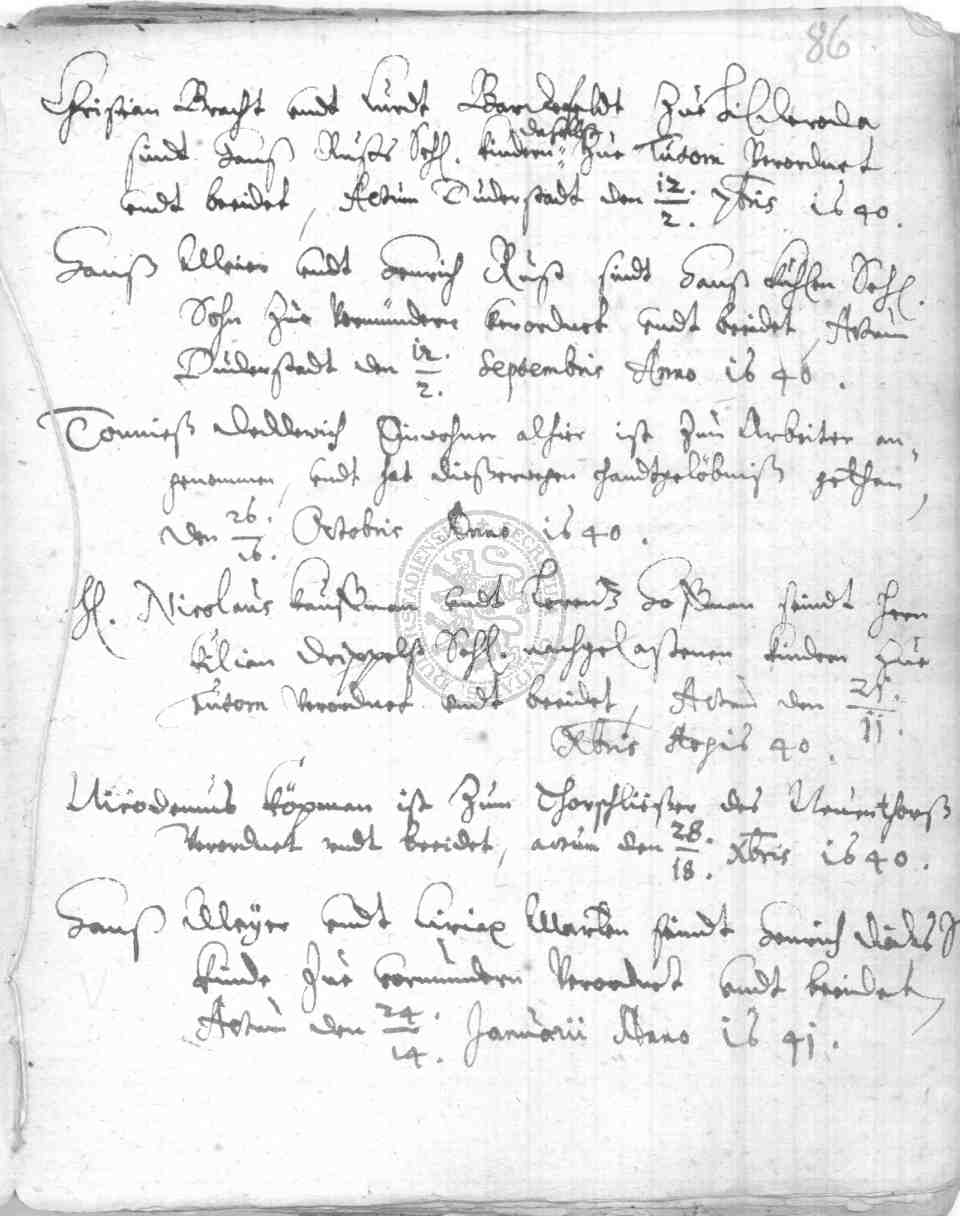 86
Christian Bracht undt Curdt Barckefeldt zue Hilckeroda
sindt Hanß Rußs Sehl. kindern daselbst zue Tutorn Verordnet
undt beeidet, Actum Duderstadt den 12./2. 7bris 1640.
Hanß Meier undt Henrich Ruß sindt Hanß Sehl.
Sohn zue Vormündern verordnet undt beeidet, Actum
Duderstadt den 12./2. Septembris Anno 1640.
Tonnieß Dedderich Einwohner alhier ist zum Arbeiter an-
genommen, undt hat dießerwegen handtgelöbniß gethan,
den 26./16. Octobris Anno 1640.
H. Nicolaus Kauffman undt Lorentz Hoffman seindt Herrn
Kilian Sehl. nachgelaßenen kindern zue
Tutorn Verordnet undt beeidet, Actum den 21./11.
Xbris 40.
Nicodemus Köpman ist zum Thorschließer des Neuenthorß
Verordnet undt beeidet, actum den 28./18. Xbris 1640.
Hanß Meÿer undt Ciriax seindt Henrich
kinde zue vormündern Verordnet undt beeidet,
Actum den 24./14. Januarii Anno 1641.